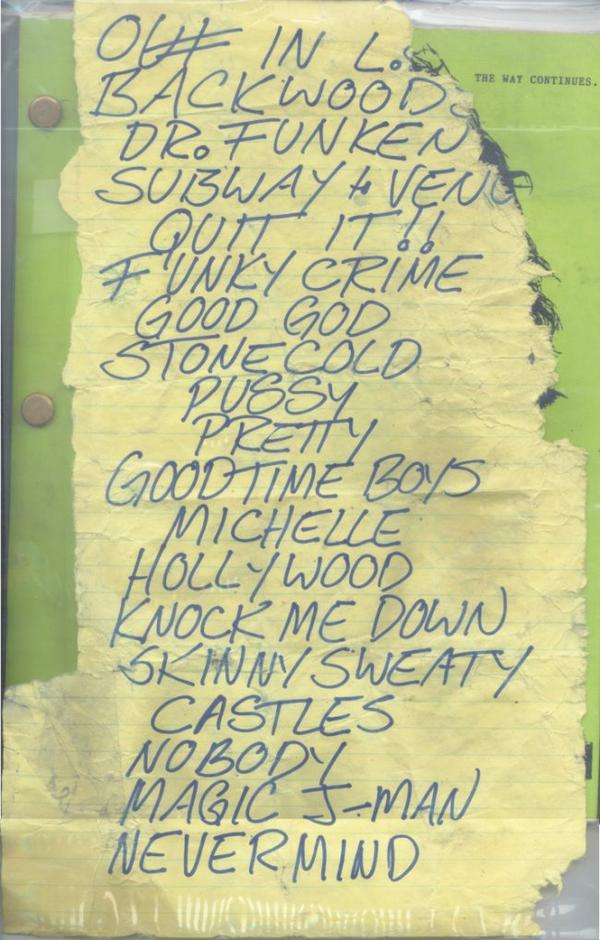 OUT IN L.A
THE WAY CONTINUES.
BACKWOODS
DR. FUNKEN
SUBWAY to VENU
QUIT IT!!
FUNKY CRIME
GOOD GOD
STONECOLD
PUSSY
PRETTY
GOODTIME BOYS
MICHELLE
HOLLYWOOD
KNOCK ME DOWN
SKINNY SWEATY
CASTLES
NOBODY
MAGIC J-MAN
NEVERMIND